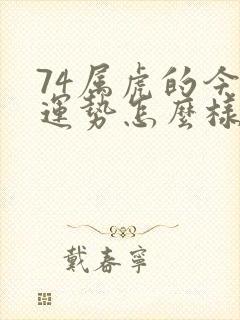 74属虎的今
運勢怎麼樣
戴春寧